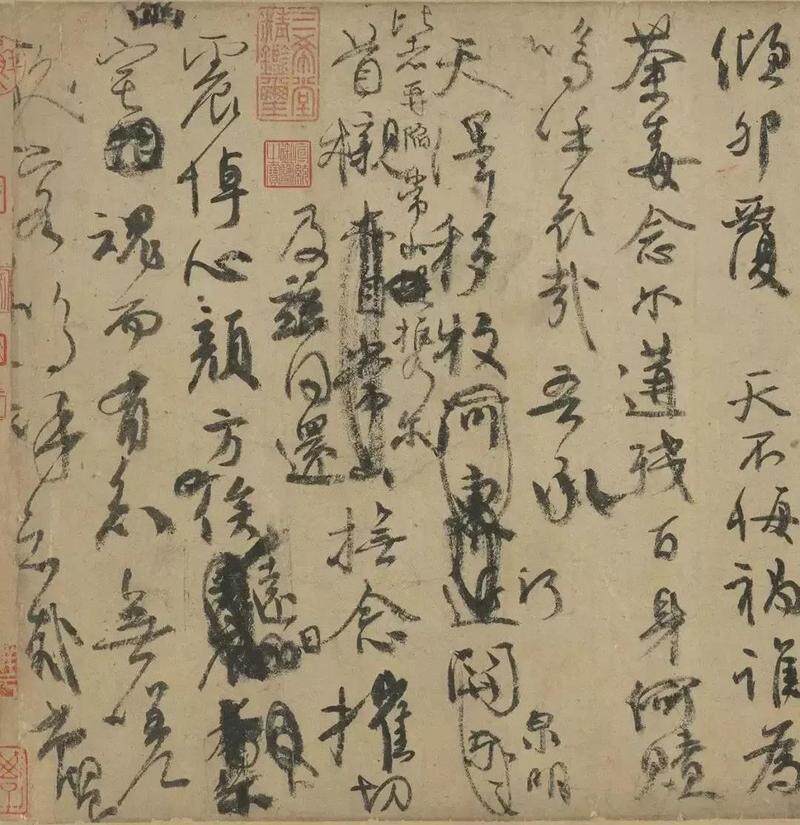 傾卵覆 天不悔禍誰為
荼毒念尔遘殘百身何贖
嗚呼哀哉吾承
行 泉明
天澤移牧河東近關尔之
比者再陷常山攜尔
首櫬亦自常山撫念摧切
及茲同還
震悼心顏方俟
遠日
宅相魂而有知無嗟
久客嗚呼哀哉尚饗
三希堂精鑑璽